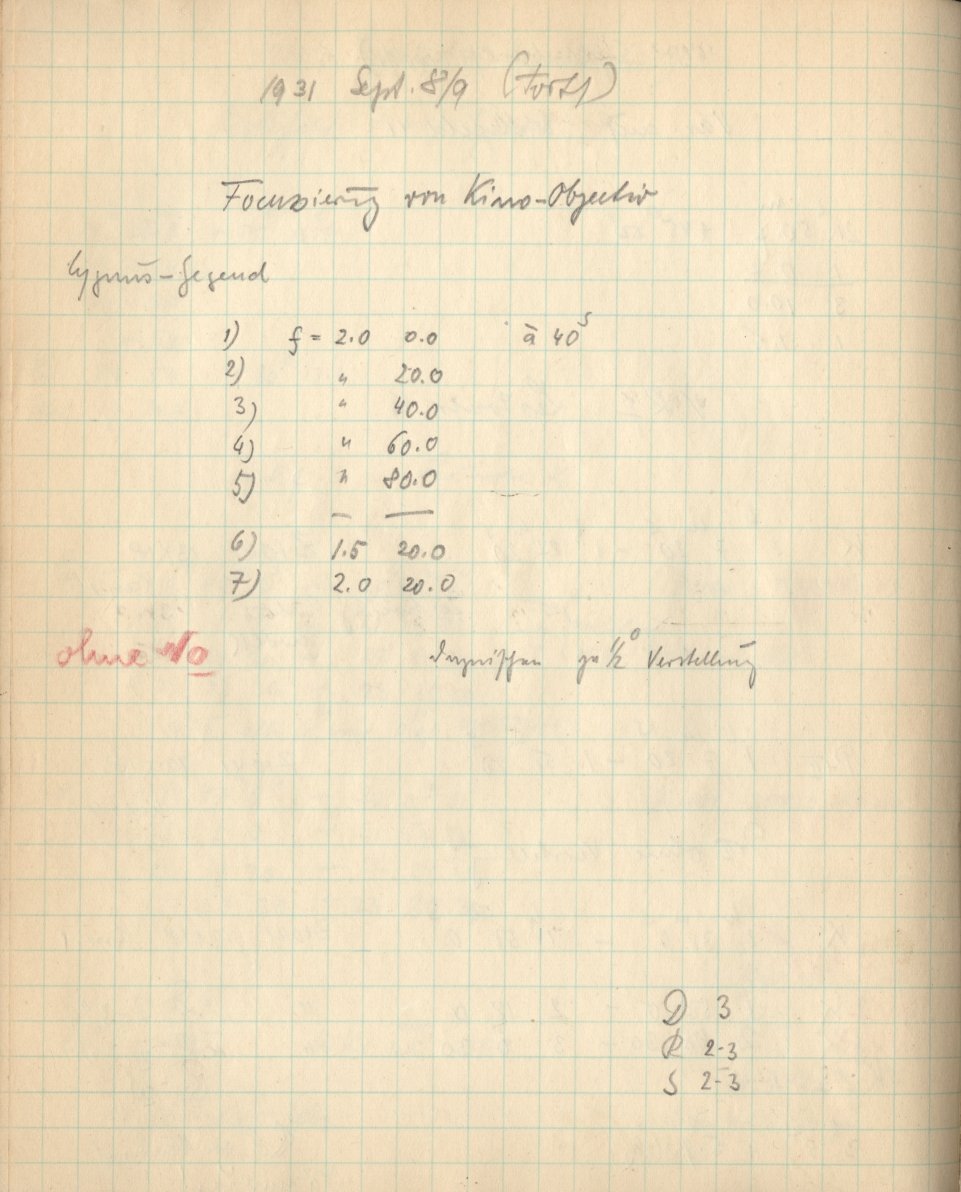 1931 Sept. 8/9 (Forts)
Focussierung von Kino-Objectiv
Cygnus-Gegend
1) f = 2.0 0.0 à 40ˢ
2) " 20.0
3) " 40.0
4) " 60.0
5) " 80.0
6) 1.5 20.0
7) 2.0 20.0
ohne No dazwischen je 1/2⁰ Verstellung
D 3
R 2-3
S 2-3